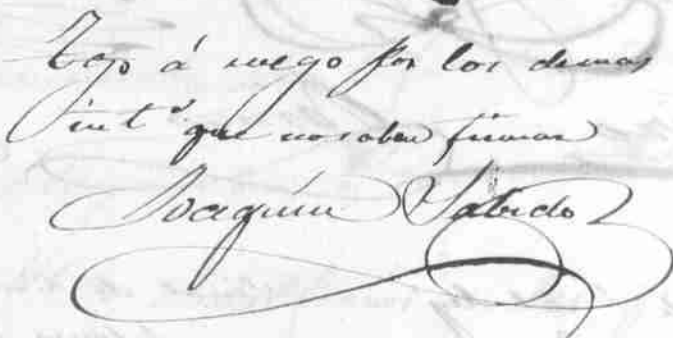 Tgo á ruego por los demas
int.s que no saben firmar
Joaquin Sabido